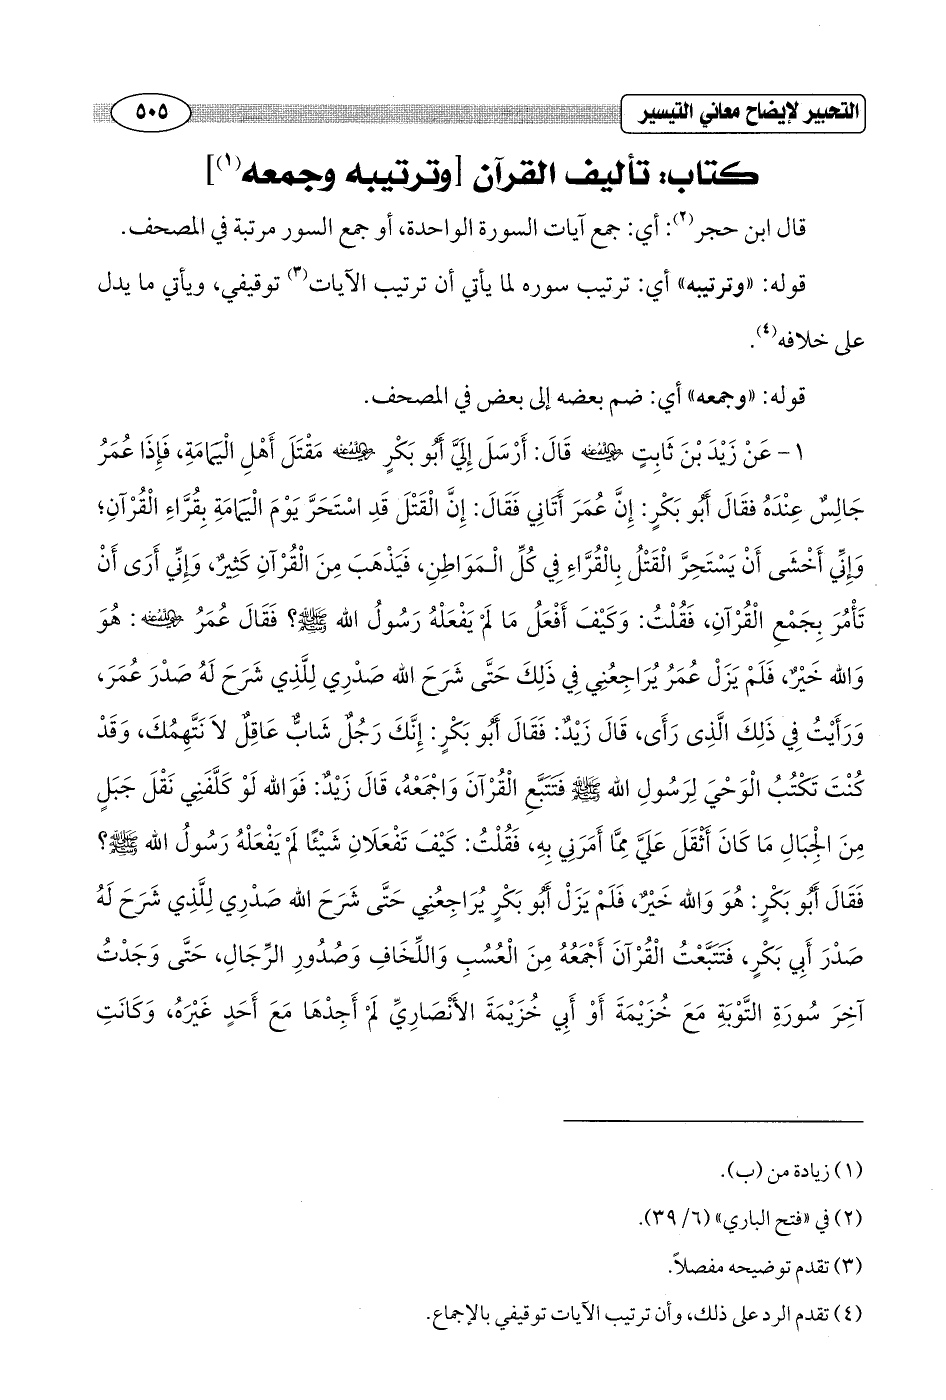 التحبير لإيضاح معاني التيسير
٥٠٥
كتاب: تأليف القرآن [وترتيبه وجمعه(١)]
قال ابن حجر(٢): أي: جمع آيات السورة الواحدة، أو جمع السور مرتبة في المصحف.
قوله: «وترتيبه» أي: ترتيب سوره لما يأتي أن ترتيب الآيات(٣) توقيفي، ويأتي ما يدل
على خلافه(٤).
قوله: «وجمعه» أي: ضم بعضه إلى بعض في المصحف.
١ - عَنْ زَيْدَ بْنَ ثَابِتٍ رضي الله عنه قَالَ: أَرْسَلَ إِلَيَّ أَبُو بَكْرٍ رضي الله عنه مَقْتَلَ أَهْلِ الْيَمَامَةِ، فَإِذَا عُمَرُ
جَالِسٌ عِنْدَهُ فقَالَ أَبُو بَكْرٍ: إِنَّ عُمَرَ أَتَانِي فَقَالَ: إِنَّ الْقَتْلَ قَدِ اسْتَحَرَّ يَوْمَ الْيَمَامَةِ بِقُرَّاءِ الْقُرْآنِ؛
وَإِنِّي أَخْشَى أَنْ يَسْتَحِرَّ الْقَتْلُ بِالْقُرَّاءِ فِي كُلِّ الْمَوَاطِنِ، فَيَذْهَبَ مِنَ الْقُرْآنِ كَثِيرٌ، وَإِنِّي أَرَى أَنْ
تَأْمُرَ بِجَمْعِ الْقُرْآنِ، فَقُلْتُ: وَكَيْفَ أَفْعَلُ مَا لَمْ يَفْعَلْهُ رَسُولُ الله ﷺ؟ فَقَالَ عُمَرُ رضي الله عنه: هُوَ
وَالله خَيْرٌ، فَلَمْ يَزَل عُمَرُ يُرَاجِعُنِي فِي ذَلِكَ حَتَّى شَرَحَ الله صَدْرِي لِلَّذِي شَرَحَ لَهُ صَدْرَ عُمَرَ،
وَرَأَيْتُ فِي ذَلِكَ الَّذِى رَأَى، قَالَ زَيْدٌ: فَقَالَ أَبُو بَكْرٍ: إِنَّكَ رَجُلٌ شَابٌّ عَاقِلٌ لاَ نَتَّهِمُكَ، وَقَدْ
كُنْتَ تَكْتُبُ الْوَحْيَ لِرَسُولِ الله ﷺ فَتَتَبَّعِ الْقُرْآنَ وَاجْمَعْهُ، قَالَ زَيْدٌ: فَوَالله لَوْ كَلَّفَنِي نَقْلَ جَبَلٍ
مِنَ الْجِبَالِ مَا كَانَ أَثْقَلَ عَلَيَّ مِمَّا أَمَرَنِي بِهِ، فَقُلْتُ: كَيْفَ تَفْعَلَانِ شَيْئًا لَمْ يَفْعَلْهُ رَسُولُ الله ﷺ؟
فَقَالَ أَبُو بَكْرٍ: هُوَ وَالله خَيْرٌ، فَلَمْ يَزَلْ أَبُو بَكْرٍ يُرَاجِعُنِي حَتَّى شَرَحَ الله صَدْرِي لِلَّذِي شَرَحَ لَهُ
صَدْرَ أَبِي بَكْرٍ، فَتَتَبَّعْتُ الْقُرْآنَ أَجْمَعُهُ مِنَ الْعُسُبِ وَاللِّخَافِ وَصُدُورِ الرِّجَالِ، حَتَّى وَجَدْتُ
آخِرَ سُورَةِ التَّوْبَةِ مَعَ خُزَيْمَةَ أَوْ أَبِي خُزَيْمَةَ الأَنْصَارِيِّ لَمْ أَجِدْهَا مَعَ أَحَدٍ غَيْرَهُ، وَكَانَتِ
(١) زيادة من (ب).
(٢) في «فتح الباري» (٦/ ٣٩).
(٣) تقدم توضيحه مفصلاً.
(٤) تقدم الرد على ذلك، وأن ترتيب الآيات توقيفي بالإجماع.